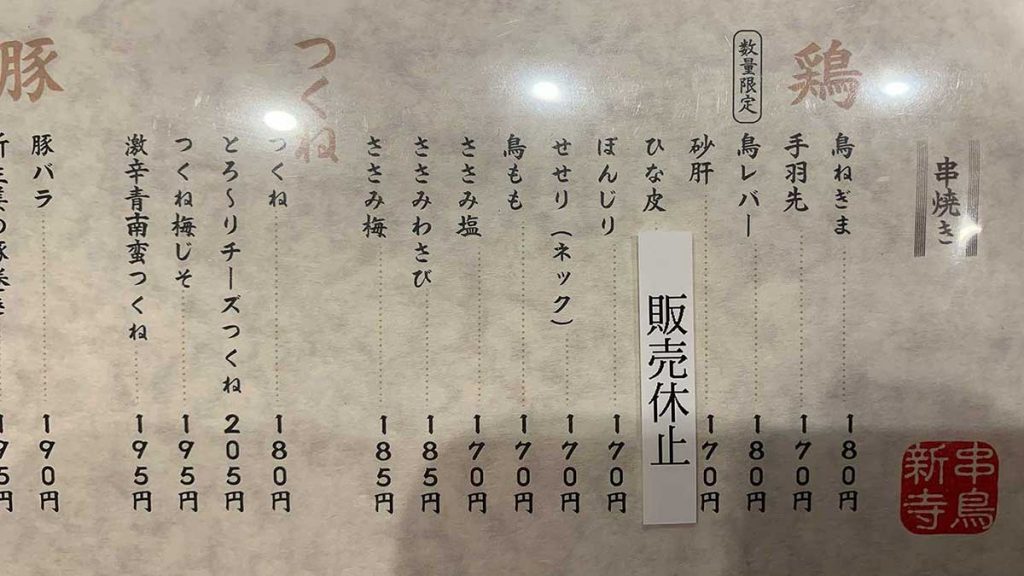 串焼き
串鳥
新寺
鶏
鳥ねぎま 180円
手羽先 170円
数量限定
鳥レバー 180円
砂肝 170円
ひな皮
販売休止
ぼんじり 170円
せせり(ネック) 170円
鳥もも 170円
ささみ塩 170円
ささみわさび 185円
ささみ梅 185円
つくね
つくね 180円
とろ〜りチーズつくね 205円
つくね梅じそ 195円
激辛青南蛮つくね 195円
豚
豚バラ 190円
195円